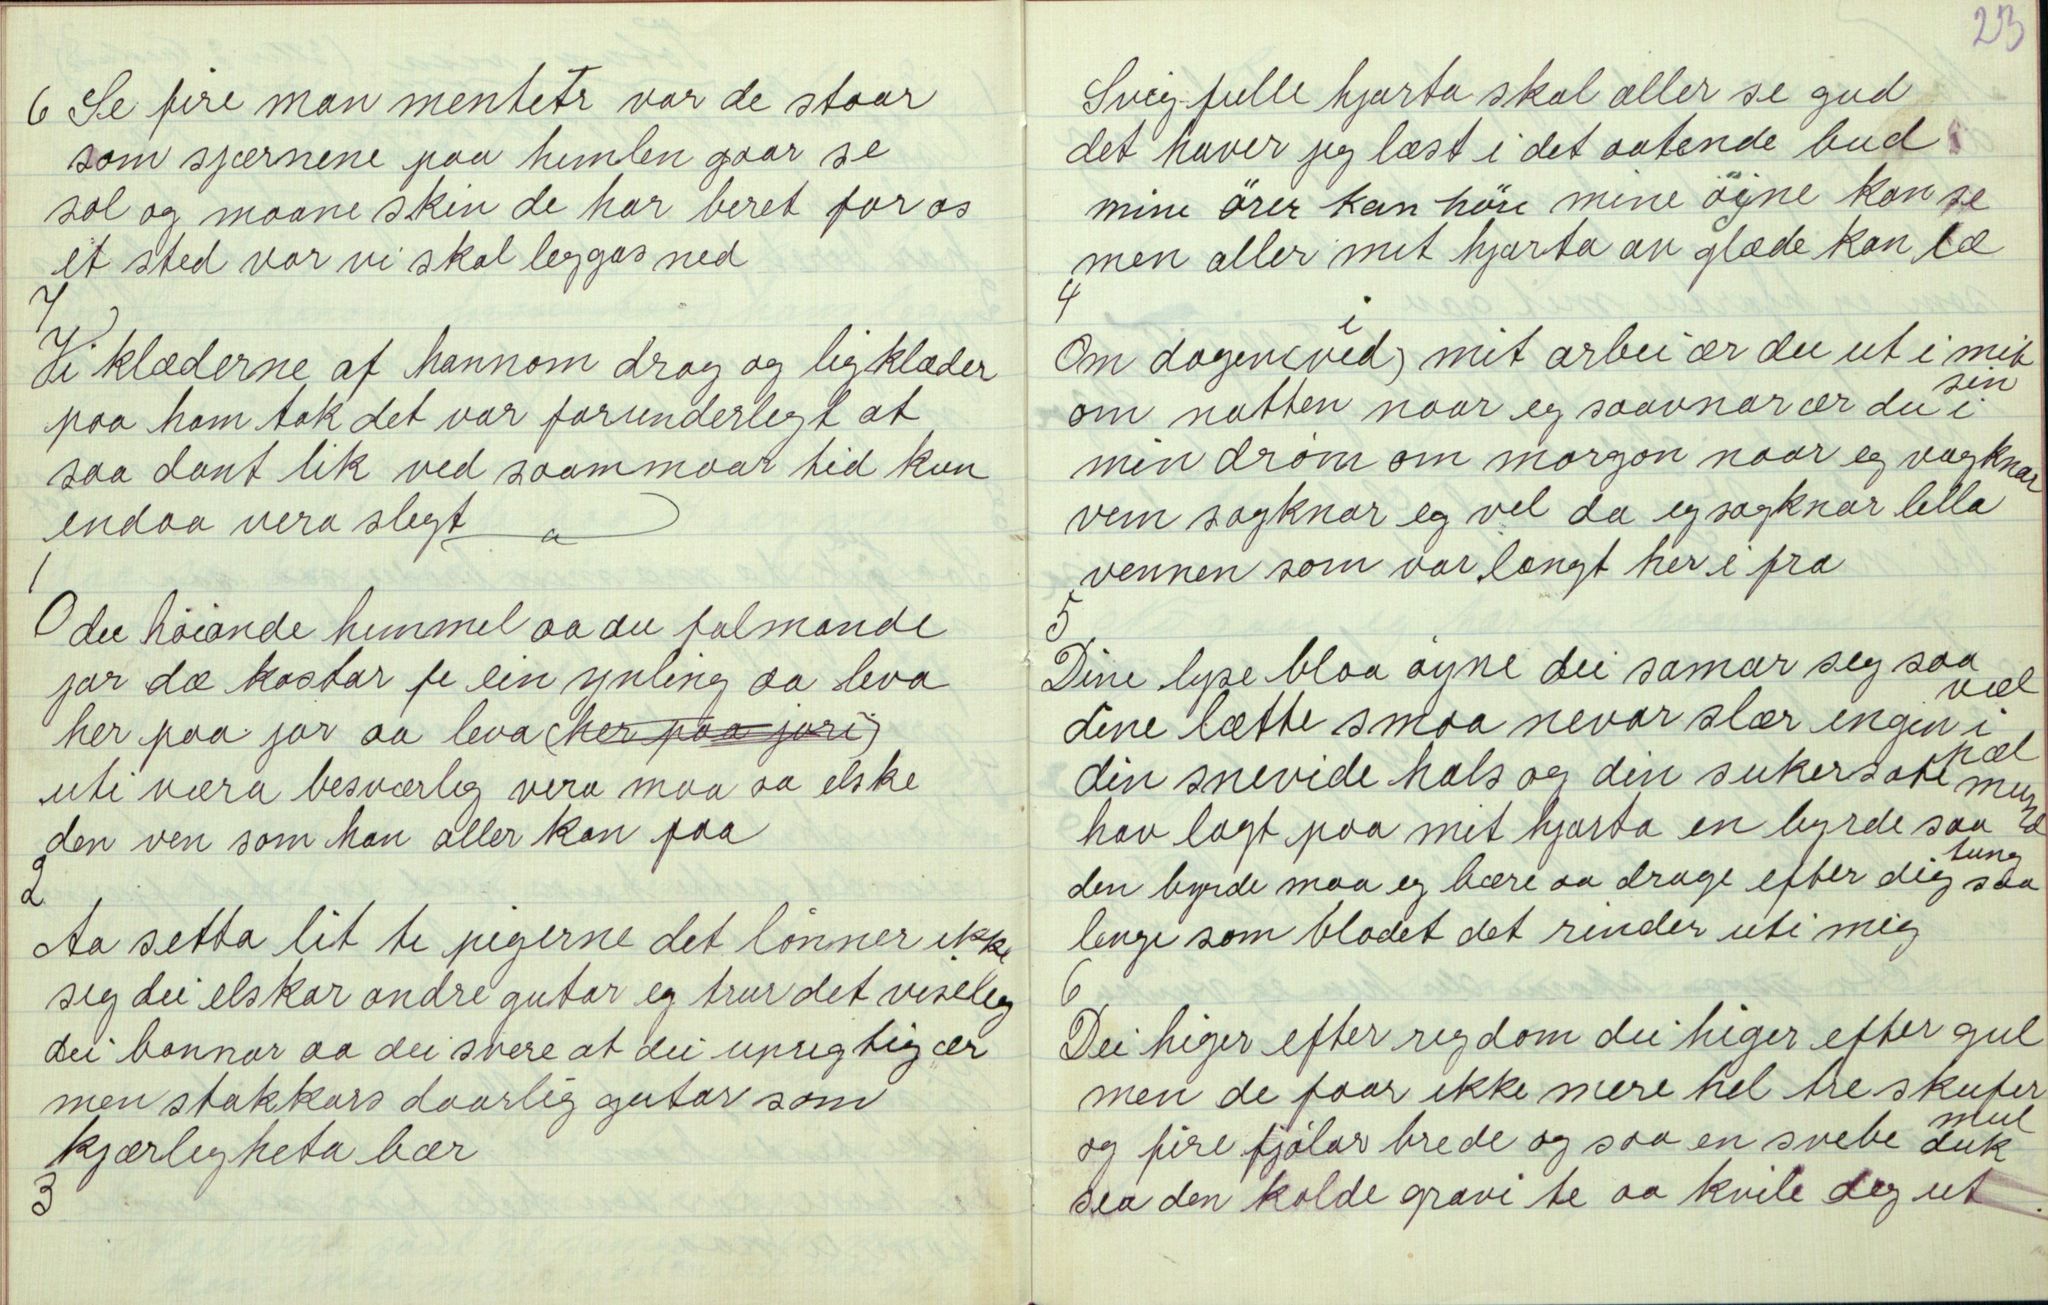 6 Se fire man mentetr var de staar
som sjærnene paa himlen gaar se
sol og maane skin de har beret for os
et sted var vi skal leggas ned
7
Vi klæderne af hannom drog og ligklæder
paa ham tok det var forunderlegt at
saa dant lik ved saammaar tid kun
endaa vera slegt
1
O du höiande himmel aa du falmande
jor dæ kostar fe ein ynling aa leva
her paa jor aa leva (her paa jori)
uti væra besværlig vera maa sa elske
den ven som han aller kan faa
2
Aa setta lit te pigerne det lönner ikke
seg dei elskar andre gutar eg trur det viseleg
dei bannar aa dei svere at dei uprigtig ær
men stakkars daarlig gutar som
kjærligheta bær
3
23
Svig fulle hjarta skal aller se gud
det haver jeg læst i det aatende bud
mine örer kan höre mine öyne kan se
men aller mit hjarta av glæde kan læ
4
Om dagen (ved) i mit arbei ær du ut i mit
sin
om natten naar eg saavnar ær du i
min dröm om morgon naar eg vagknar
vem sagknar eg vel da eg sagknar lilla
vennen som var langt her i fra
5
Dine lyse blaa öyne dei samar seg saa
væl
dine lætte smaa nevar slær engin i
hæl
din snevide hals og din sukersöte mund
hav lagt paa mit hjarta en byrde saa
tung
den byrde maa eg bære aa drage efter dig saa
lenge som blodet det rinder uti mig
6
Dei higer efter regdom dei higer efter gul
men de faar ikke mere hel tre skufer
mul
og fire fjölar brede og saa en svebe duk
sea den kalde gravi te aa kvile deg ut